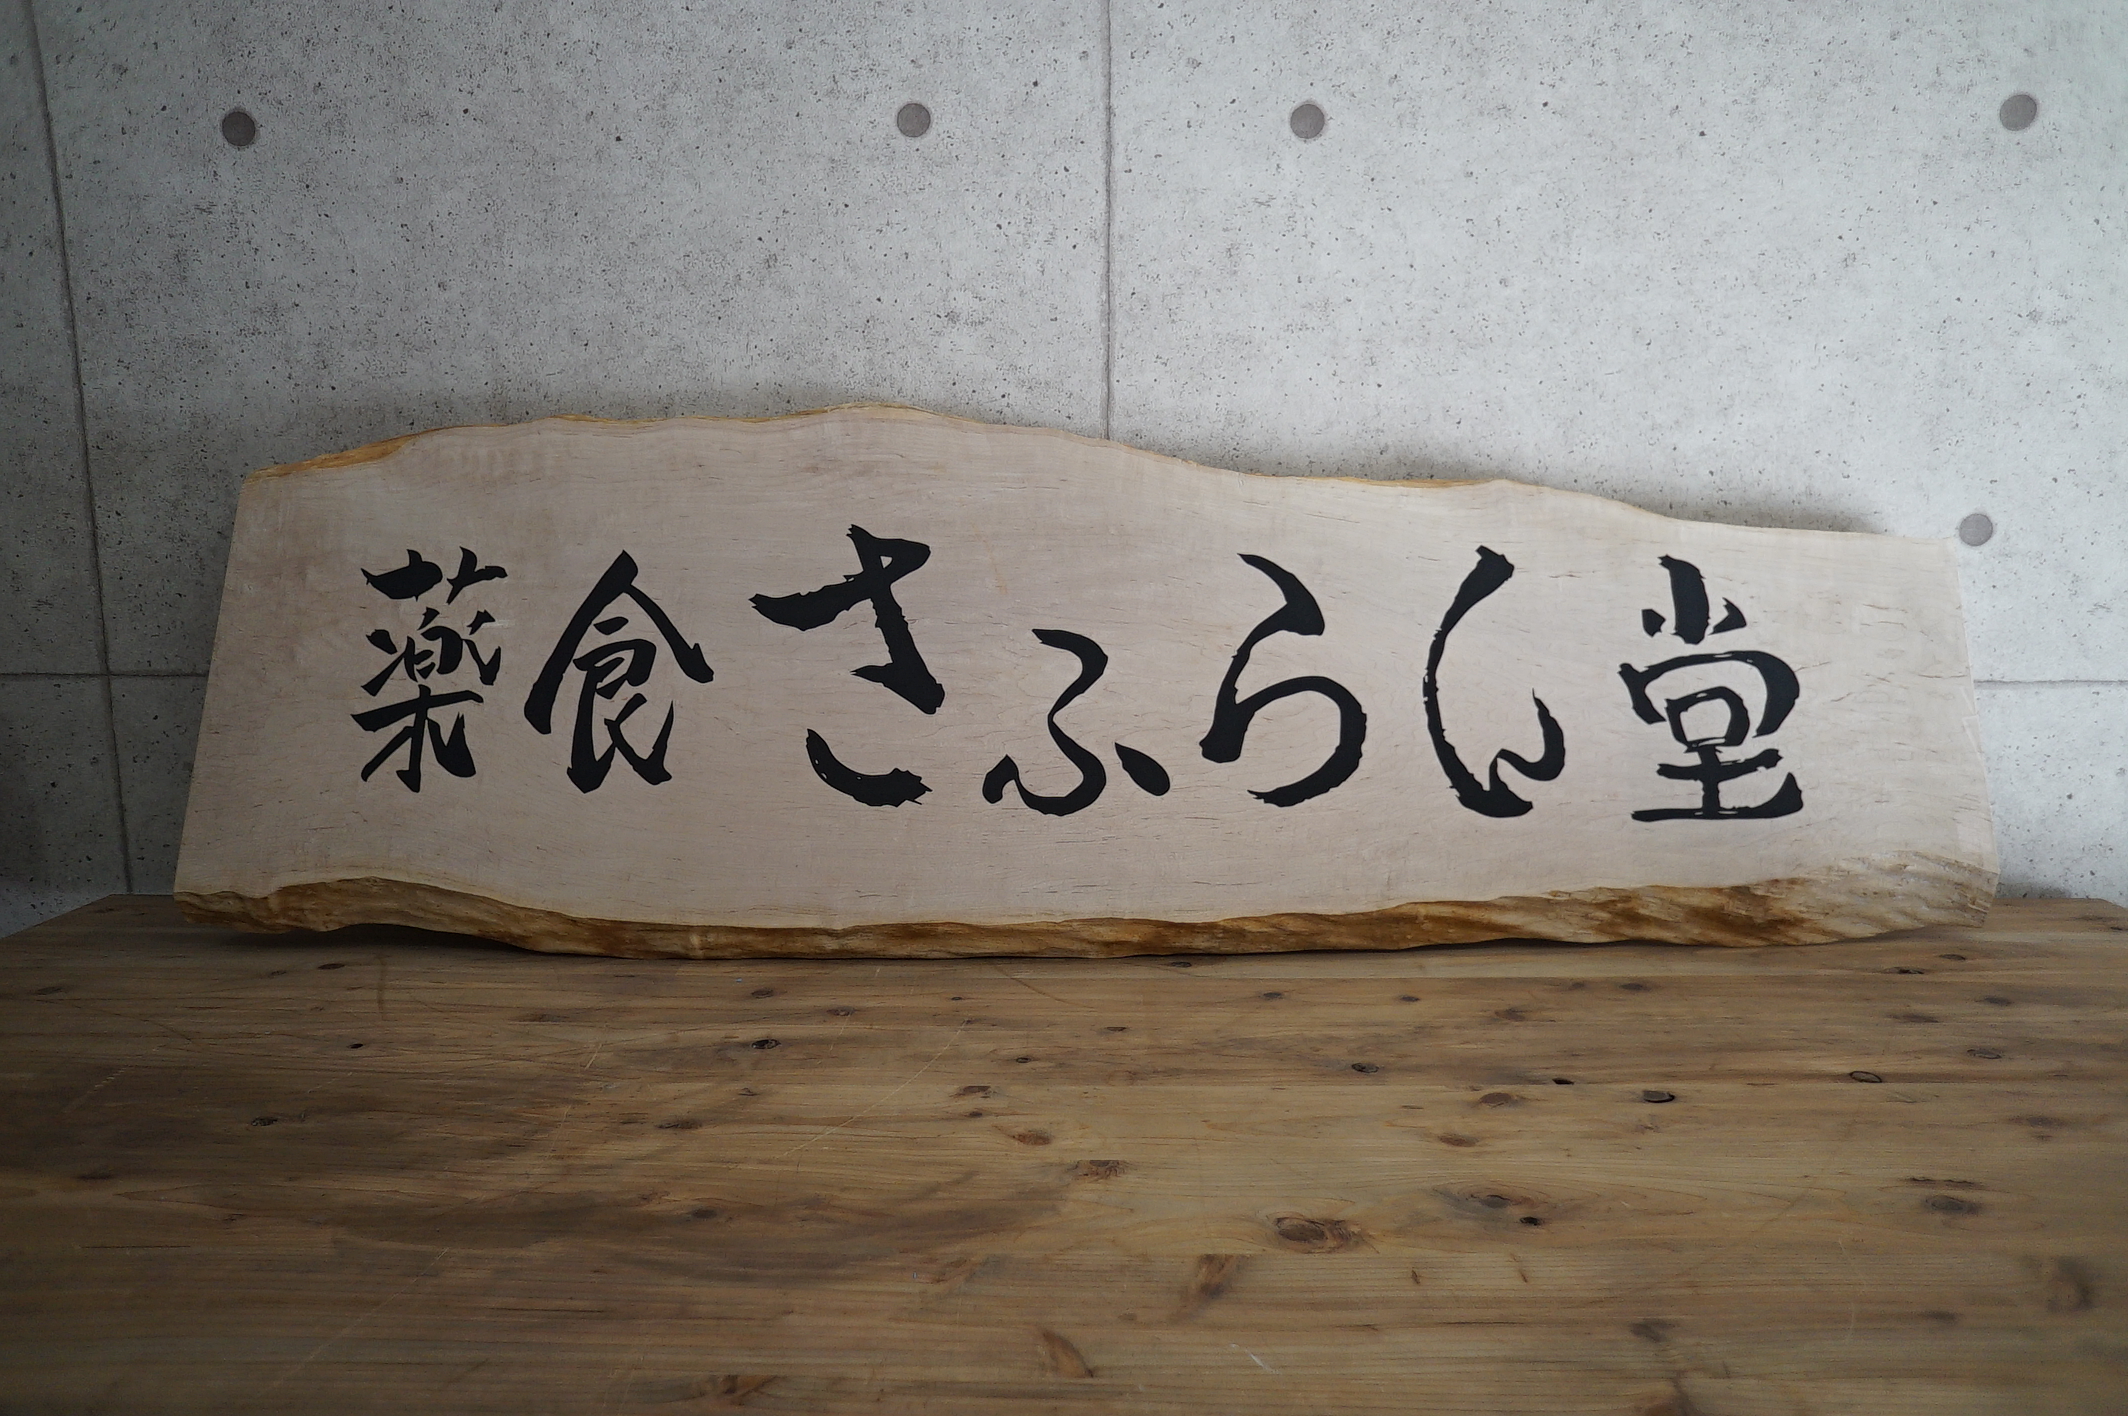 薬食さふらん堂